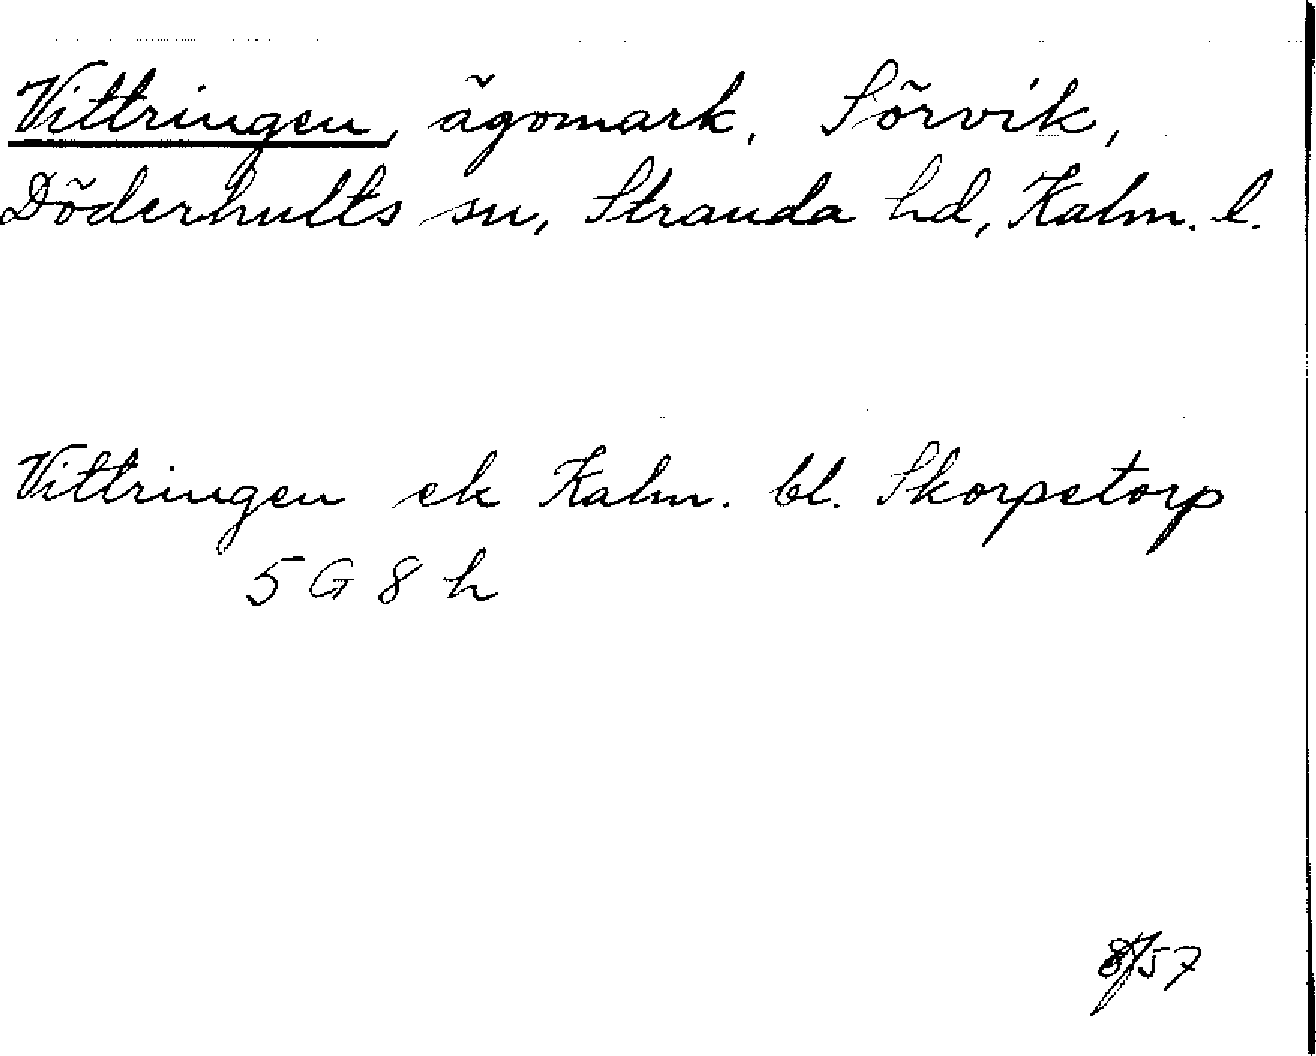 Vittringen, ägomark, Sörvik,
Döderhults sn, Stranda hd, Kalm. l.
Vittringen ek Kalm. bl. Skorpetorp
5 G 8 h
57